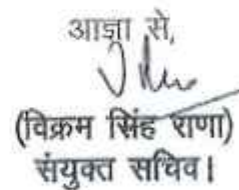 आज्ञा से,
(विक्रम सिंह राणा)
संयुक्त सचिव।